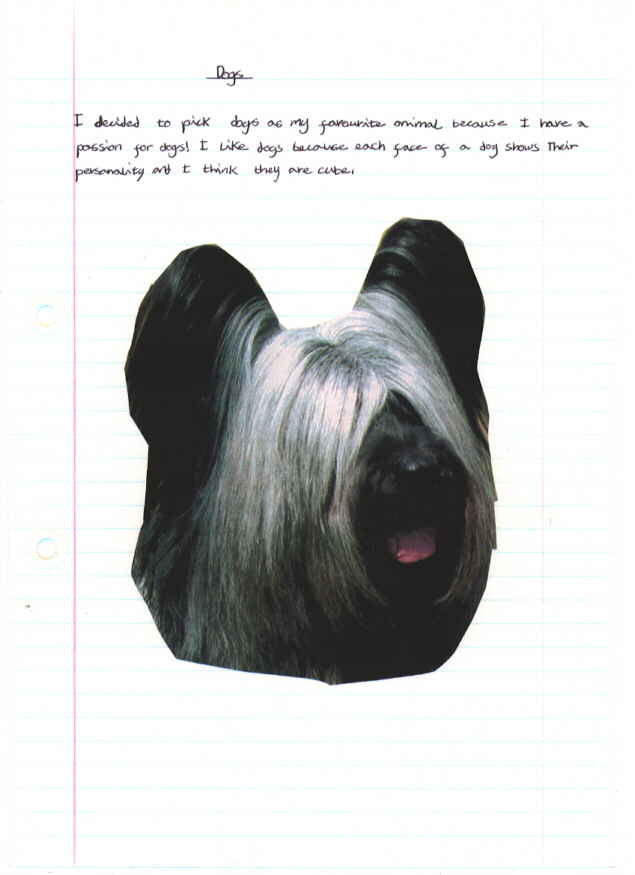 Dogs
I decided to pick dogs as my favourite animal because I have a
passion for dogs! I Like dogs because each face of a dog shows Their
personality and I think they are cute.